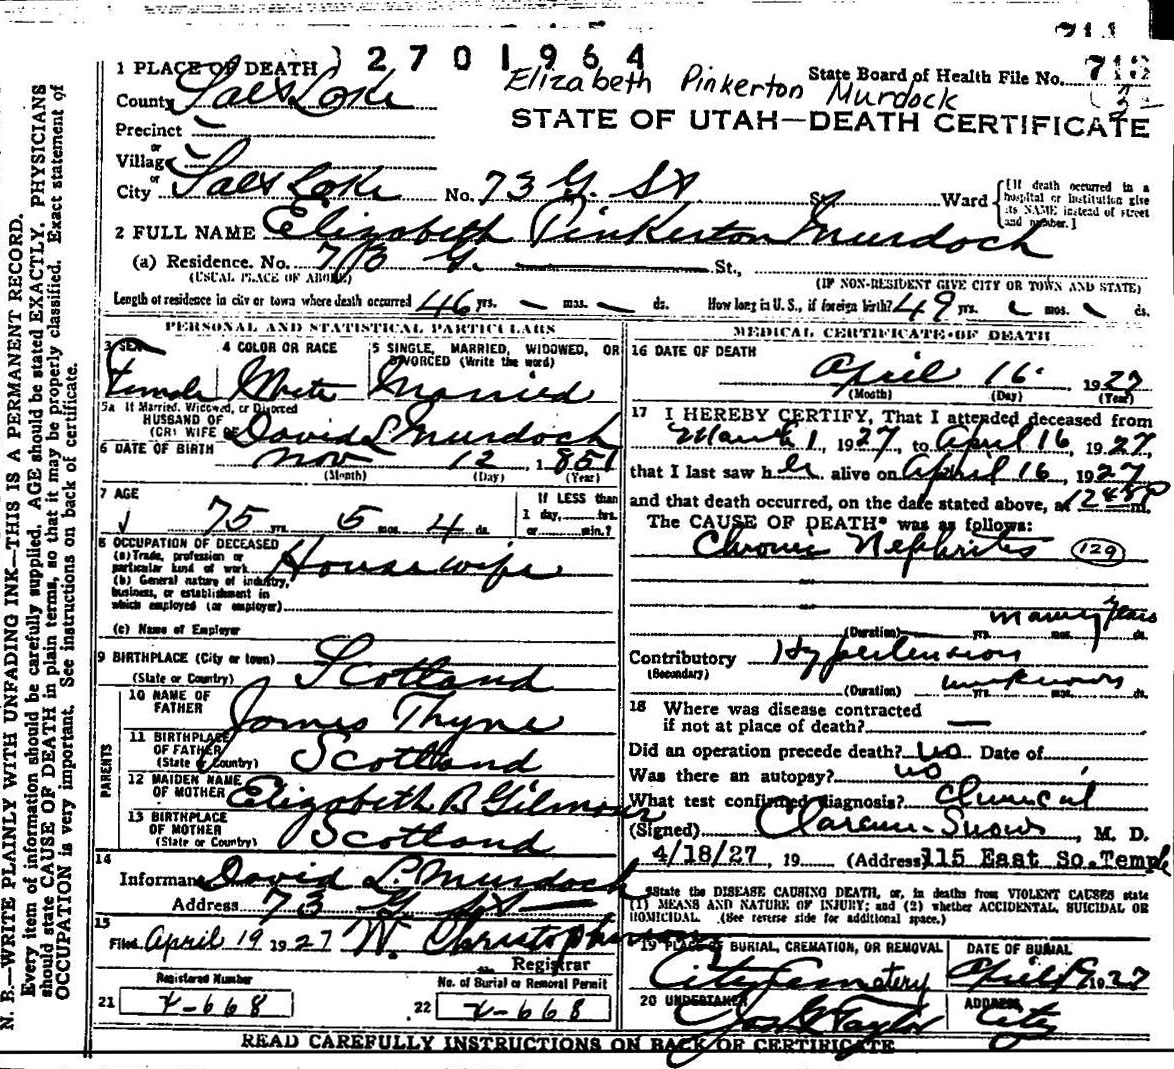 2701964
711
1 PLACE OF DEATH
Elizabeth Pinkerton Murdock
State Board of Health File No. 713
County Salt Lake
STATE OF UTAH—DEATH CERTIFICATE
Precinct
or
Village
or
City Salt Lake No. 73 G. St St. Ward
[If death occurred in a hospital or institution give its NAME instead of street and number.]
2 FULL NAME Elizabeth Pinkerton Murdock
(a) Residence. No. 73 G. St.,
(USUAL PLACE OF ABODE)
(IF NON-RESIDENT GIVE CITY OR TOWN AND STATE)
Length of residence in city or town where death occurred 46 yrs. mos. ds. How long in U.S., if foreign birth? 49 yrs. mos. ds.
PERSONAL AND STATISTICAL PARTICULARS
3 SEX Female
4 COLOR OR RACE White
5 SINGLE, MARRIED, WIDOWED, OR DIVORCED (Write the word) Married
5a If Married, Widowed, or Divorced
HUSBAND OF
(OR) WIFE OF David L Murdock
6 DATE OF BIRTH Nov 12 1851
(Month) (Day) (Year)
7 AGE 75 yrs. 5 mos. 4 ds.
If LESS than
1 day, hrs.
or min.?
8 OCCUPATION OF DECEASED
(a) Trade, profession or particular kind of work Housewife
(b) General nature of industry, business, or establishment in which employed (or employer)
(c) Name of Employer
9 BIRTHPLACE (City or town)
(State or Country) Scotland
PARENTS
10 NAME OF FATHER James Thyne
11 BIRTHPLACE OF FATHER (State or Country) Scotland
12 MAIDEN NAME OF MOTHER Elizabeth B Gilmour
13 BIRTHPLACE OF MOTHER (State or Country) Scotland
14
Informant David L Murdock
Address 73 G St
15
Filed April 19 1927 W. Christopherson
Registrar
Registered Number
No. of Burial or Removal Permit
21 X-668
22 X-668
MEDICAL CERTIFICATE OF DEATH
16 DATE OF DEATH
April 16 1927
(Month) (Day) (Year)
17 I HEREBY CERTIFY, That I attended deceased from
March 1, 1927, to April 16, 1927,
that I last saw her alive on April 16, 1927
and that death occurred, on the date stated above, at 1248P m.
The CAUSE OF DEATH* was as follows:
Chronic Nephritis (129)
many years
(Duration) yrs. mos. ds.
Contributory Hypertension
(Secondary)
unknown
(Duration) yrs. mos. ds.
18 Where was disease contracted
if not at place of death?
Did an operation precede death? no Date of
Was there an autopsy? no
What test confirmed diagnosis? Clinical
(Signed) Clarence Snow, M. D.
4/18/27, 19 (Address) 115 East So.Temple
*State the DISEASE CAUSING DEATH, or, in deaths from VIOLENT CAUSES state
(1) MEANS AND NATURE OF INJURY; and (2) whether ACCIDENTAL, SUICIDAL OR
HOMICIDAL. (See reverse side for additional space.)
19 PLACE OF BURIAL, CREMATION, OR REMOVAL
City Cemetery
DATE OF BURIAL
April 19 1927
20 UNDERTAKER
Jos G Taylor
ADDRESS
City
READ CAREFULLY INSTRUCTIONS ON BACK OF CERTIFICATE
N. B.—WRITE PLAINLY WITH UNFADING INK—THIS IS A PERMANENT RECORD.
Every item of information should be carefully supplied. AGE should be stated EXACTLY. PHYSICIANS
should state CAUSE OF DEATH in plain terms, so that it may be properly classified. Exact statement of
OCCUPATION is very important. See instructions on back of certificate.